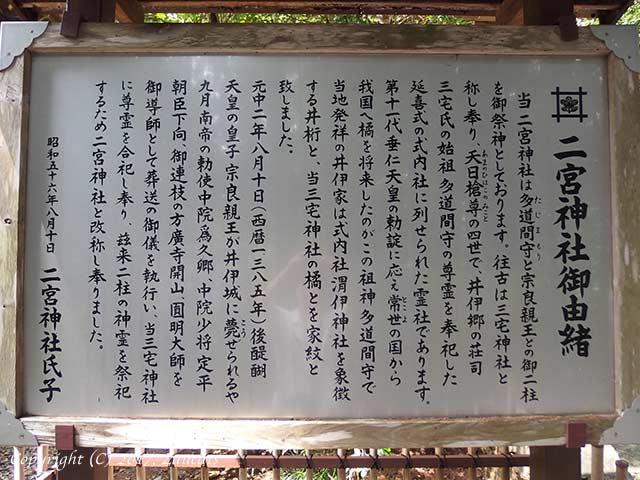 二宮神社御由緒
当 二宮神社は多道間守と宗良親王との御二柱
たじまもり
を御祭神としております。往古は三宅神社と
称し奉り、天日槍尊の四世で、井伊郷の荘司
あまのひぼこのみこと
三宅氏の始祖 多道間守の尊霊を奉祀した
延喜式の式内社に列せられた霊社であります。
第十一代 垂仁天皇の勅諚に応え常世の国から
とこ
我国へ橘を将来したのがこの祖神 多道間守で
当地発祥の井伊家は式内社 渭伊神社を象徴
する井桁と、当三宅神社の橘とを家紋と
致しました。
元中二年八月十日(西暦一三八五年)後醍醐
天皇の皇子 宗良親王が井伊城に薨せられるや
こう
九月 南帝の勅使中院爲久卿、中院少将定平
朝臣下向、御連枝の方廣寺開山、圓明大師を
御導師として葬送の御儀を執行い、当三宅神社
に尊霊を合祀し奉り、茲来二柱の神霊を祭祀
するため二宮神社と改称し奉りました。
昭和五十六年八月十日
二宮神社氏子